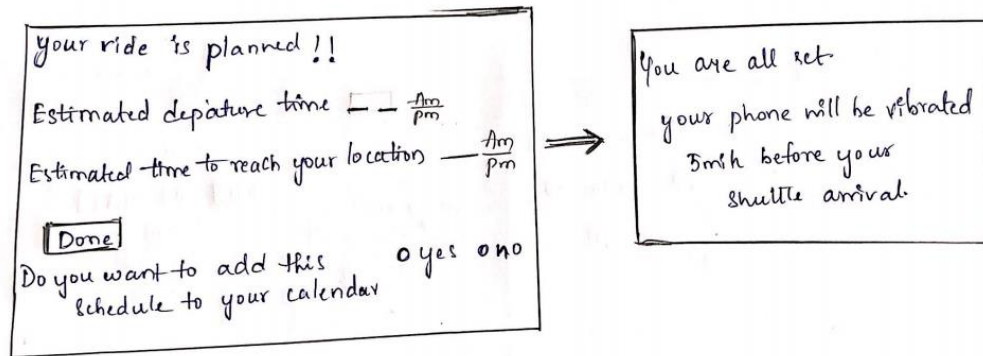 your ride is planned !!
Estimated depature time _ _ Am/pm
Estimated time to reach your location _ Am/pm
Done
Do you want to add this o yes o no
schedule to your calendar
You are all set.
your phone will be vibrated
5min before your
shuttle arrival.